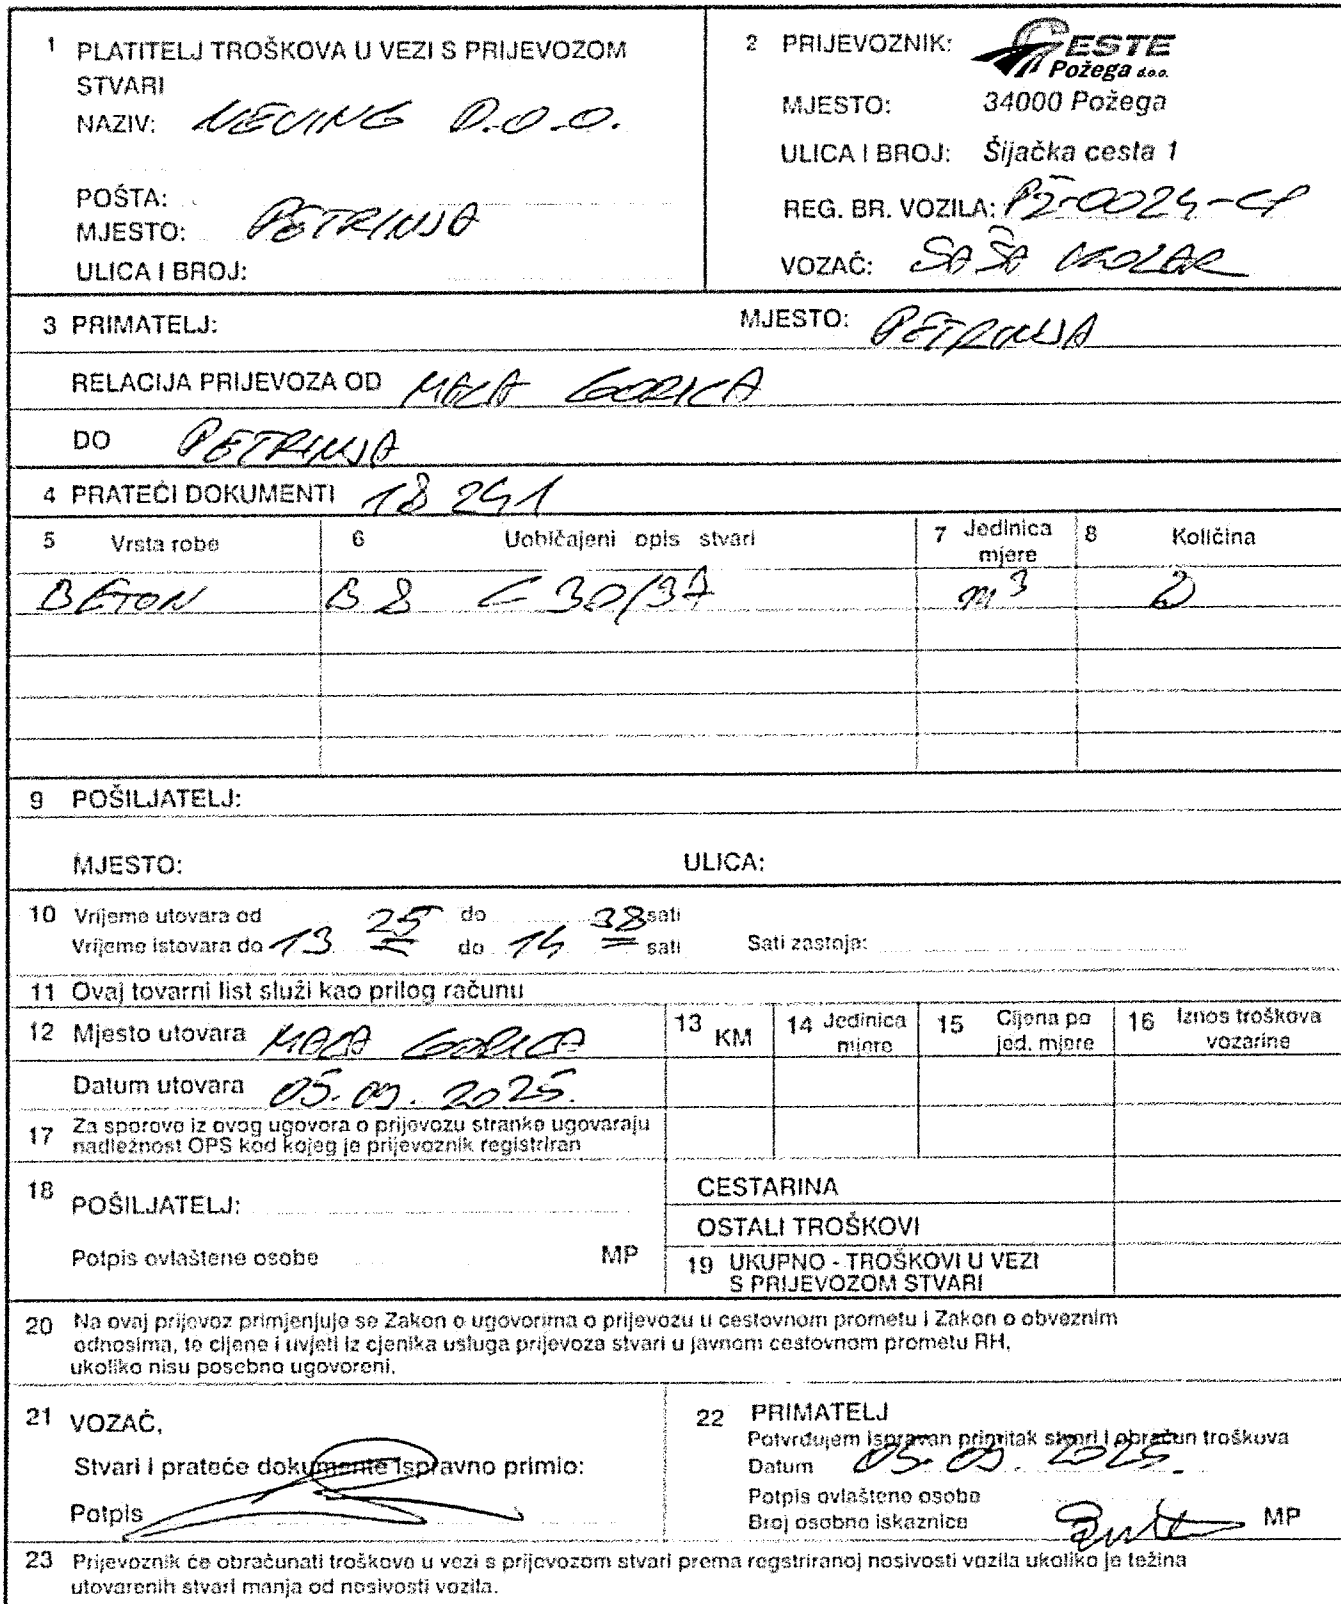 1 PLATITELJ TROŠKOVA U VEZI S PRIJEVOZOM
STVARI
NAZIV: NEVING D.O.O.
POŠTA:
MJESTO: PETRINJA
ULICA I BROJ:
2 PRIJEVOZNIK: CESTE
Požega d.o.o.
MJESTO: 34000 Požega
ULICA I BROJ: Šijačka cesta 1
REG. BR. VOZILA: PŽ-0024-CP
VOZAČ: SAŠA
3 PRIMATELJ: MJESTO: PETRINJA
RELACIJA PRIJEVOZA OD MALA GORICA
DO PETRINJA
4 PRATEĆI DOKUMENTI 18241
5 Vrsta robe 6 Uobičajeni opis stvari 7 Jedinica mjere 8 Količina
BETON B8 C30/37 m³ 2
9 POŠILJATELJ:
MJESTO: ULICA:
10 Vrijeme utovara od do sati
Vrijeme istovara do 13 25 do 14 38 sati Sati zastoja:
11 Ovaj tovarni list služi kao prilog računu
12 Mjesto utovara MALA GORICA 13 KM 14 Jedinica mjere 15 Cijena po jed. mjere 16 Iznos troškova vozarine
Datum utovara 05.09.2025.
17 Za sporove iz ovog ugovora o prijevozu stranke ugovaraju
nadležnost OPS kod kojeg je prijevoznik registriran
18 POŠILJATELJ:
Potpis ovlaštene osobe MP
CESTARINA
OSTALI TROŠKOVI
19 UKUPNO - TROŠKOVI U VEZI
S PRIJEVOZOM STVARI
20 Na ovaj prijevoz primjenjuje se Zakon o ugovorima o prijevozu u cestovnom prometu i Zakon o obveznim
odnosima, te cijene i uvjeti iz cjenika usluga prijevoza stvari u javnom cestovnom prometu RH,
ukoliko nisu posebno ugovoreni.
21 VOZAČ,
Stvari i prateće dokumente ispravno primio:
Potpis
22 PRIMATELJ
Potvrđujem ispravan primitak stvari i obračun troškova
Datum 05.09.2025.
Potpis ovlaštene osobe
Broj osobne iskaznice MP
23 Prijevoznik će obračunati troškove u vezi s prijevozom stvari prema regstriranoj nosivosti vozila ukoliko je težina
utovarenih stvari manja od nosivosti vozila.